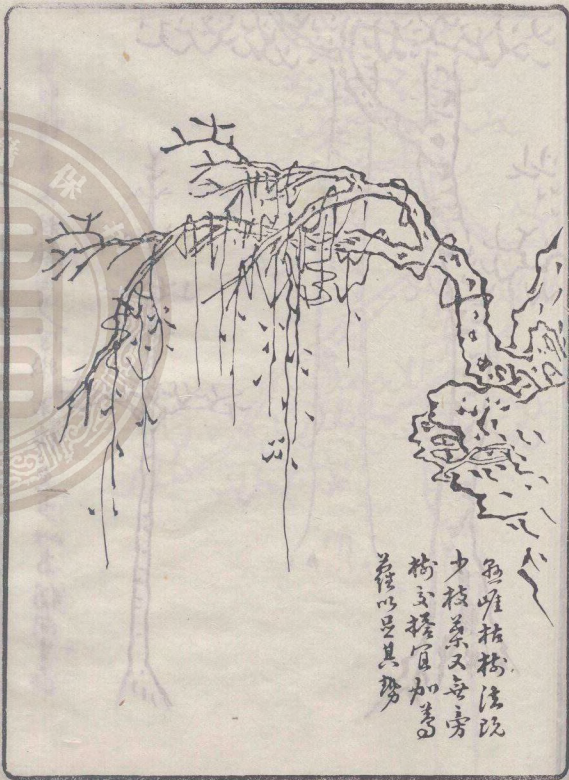 懸崖枯樹法既
少枝葉又無旁
樹交搭宜加蔦
蘿以足其勢